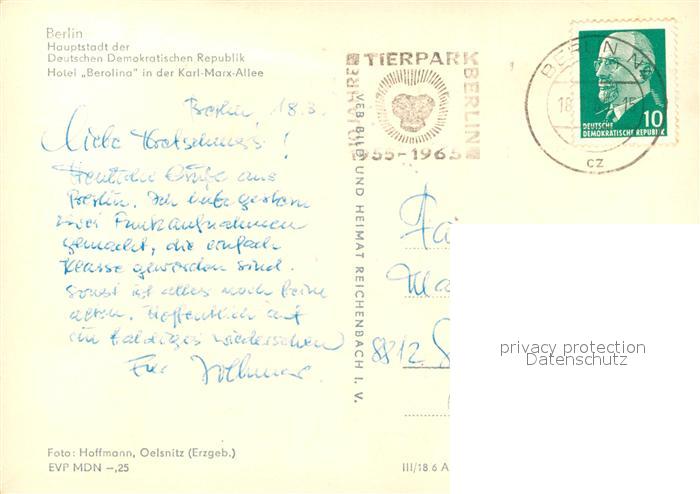 Berlin
Hauptstadt der
Deutschen Demokratischen Republik
Hotel „Berolina" in der Karl-Marx-Allee
TIERPARK
BERLIN
1955-1965
BERLIN
18
15
CZ
10
DEUTSCHE
DEMOKRATISCHE REPUBLIK
Berlin, 18.3.
Liebe Kretschmers!
Herzliche Grüße aus
Berlin. Ich habe gestern
zwei Funkaufnahmen
gemacht, die einfach
Klasse geworden sind.
Sonst ist alles noch beim
alten. Hoffentlich auf
ein baldiges Wiedersehen
Euer Vollmer.
VEB BILD UND HEIMAT REICHENBACH I. V.
8812
privacy protection
Datenschutz
Foto: Hoffmann, Oelsnitz (Erzgeb.)
EVP MDN –,25
III/18.6 A